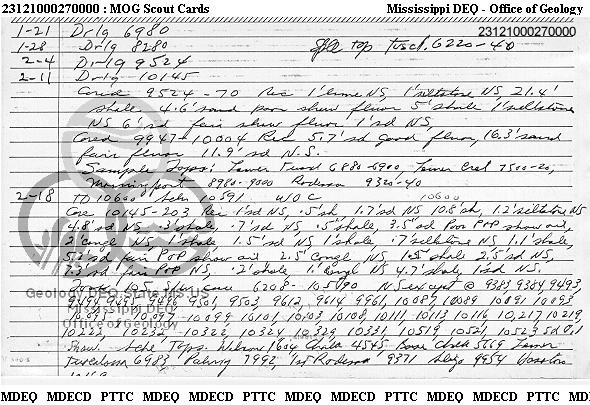 23121000270000 : MOG Scout Cards Mississippi DEQ - Office of Geology
23121000270000
1-21 Drlg 6980
1-28 Drlg 8280 Sple top Tusc. 6220-40
2-4 Drlg 9524
2-11 Drlg 10145
Cored 9524-70 Rec 1' lime NS, 1' siltstone NS 21.4'
shale 4.6' sand poor show fluor 5' shale 1' siltstone
NS 6' sd fair show fluor 1' sd NS,
Cored 9947-10004 Rec 5.7' sd good fluor, 16.3' sand
fair fluor 11.9' sd N.S.
Sample Tops: Lower Tuscl 6880-6900, Lower Cret 7500-20,
8980-9000 Rodessa 9320-40
2-18 TD 10600 Schl 10591 WOC 10600
Core 10145-203 Rec 1' sd NS, .5' sh, 1.7' sd NS 10.8' sh, 1.2' siltstone NS
4.8' sd NS .3' shale .7' sd NS, .5' shale, 3.5' sd Poor P&P show oil,
2' Congl NS 1' shale 1.5' sd NS 1' shale .7' siltstone NS, 1.1' shale,
5.2' sd fair P&P show oil 2.5' Congl NS 2.5' sd NS,
7.3' sd fair P&P NS, .2' shale 1' Congl NS 4.7' shale, 1' sd NS.
Took 105 6208-10590 NS except @ 9383 9384 9493,
9501, 9503 9612, 9614 9961, 10087, 10089 10091 10093
10095 10097 10099 10101, 10103 10108, 10111, 10113 10116 10,217 10219,
10223 10232 10322 10324 10329 10331, 10519 10521, 10529 sd Oil
Show Schl Tops: Wilcox 1604 Chalk 4545 Base Chalk 5669 Lower
Tuscaloosa 6983 Paluxy 7992, 1st Rodessa 9371 Sligo 9954 Hosston
Geology DEQ.State.MS.US
Mississippi DEQ
Office of Geology
MDEQ MDECD PTTC MDEQ MDECD PTTC MDEQ MDECD PTTC MDEQ MDECD PTTC MD